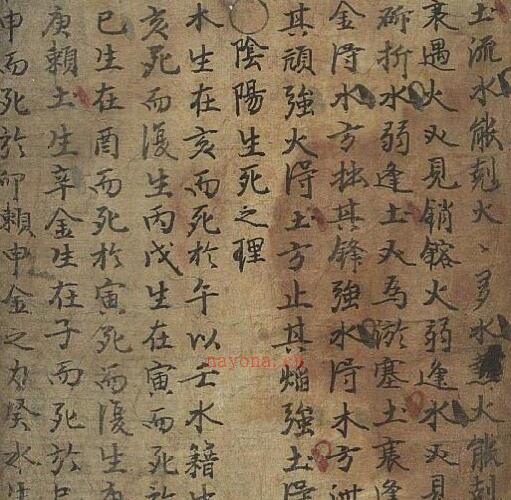 土流水能剋火〻多水火能剋
衰遇火必見銷鎔火弱逢水必見
斫折水弱逢土必為淤塞土衰逢
金得水方挫其鋒強水得木方泄
其頑強火得土方止其焰強土得
○陰陽生死之理
木生在亥而死於午以壬水籍
亥死而復生丙戊生在寅而死於
巳生在酉而死於寅死而復生
庚賴土生辛金生在子而死於
申而死於卯賴申金之力癸水生
nayona.cn